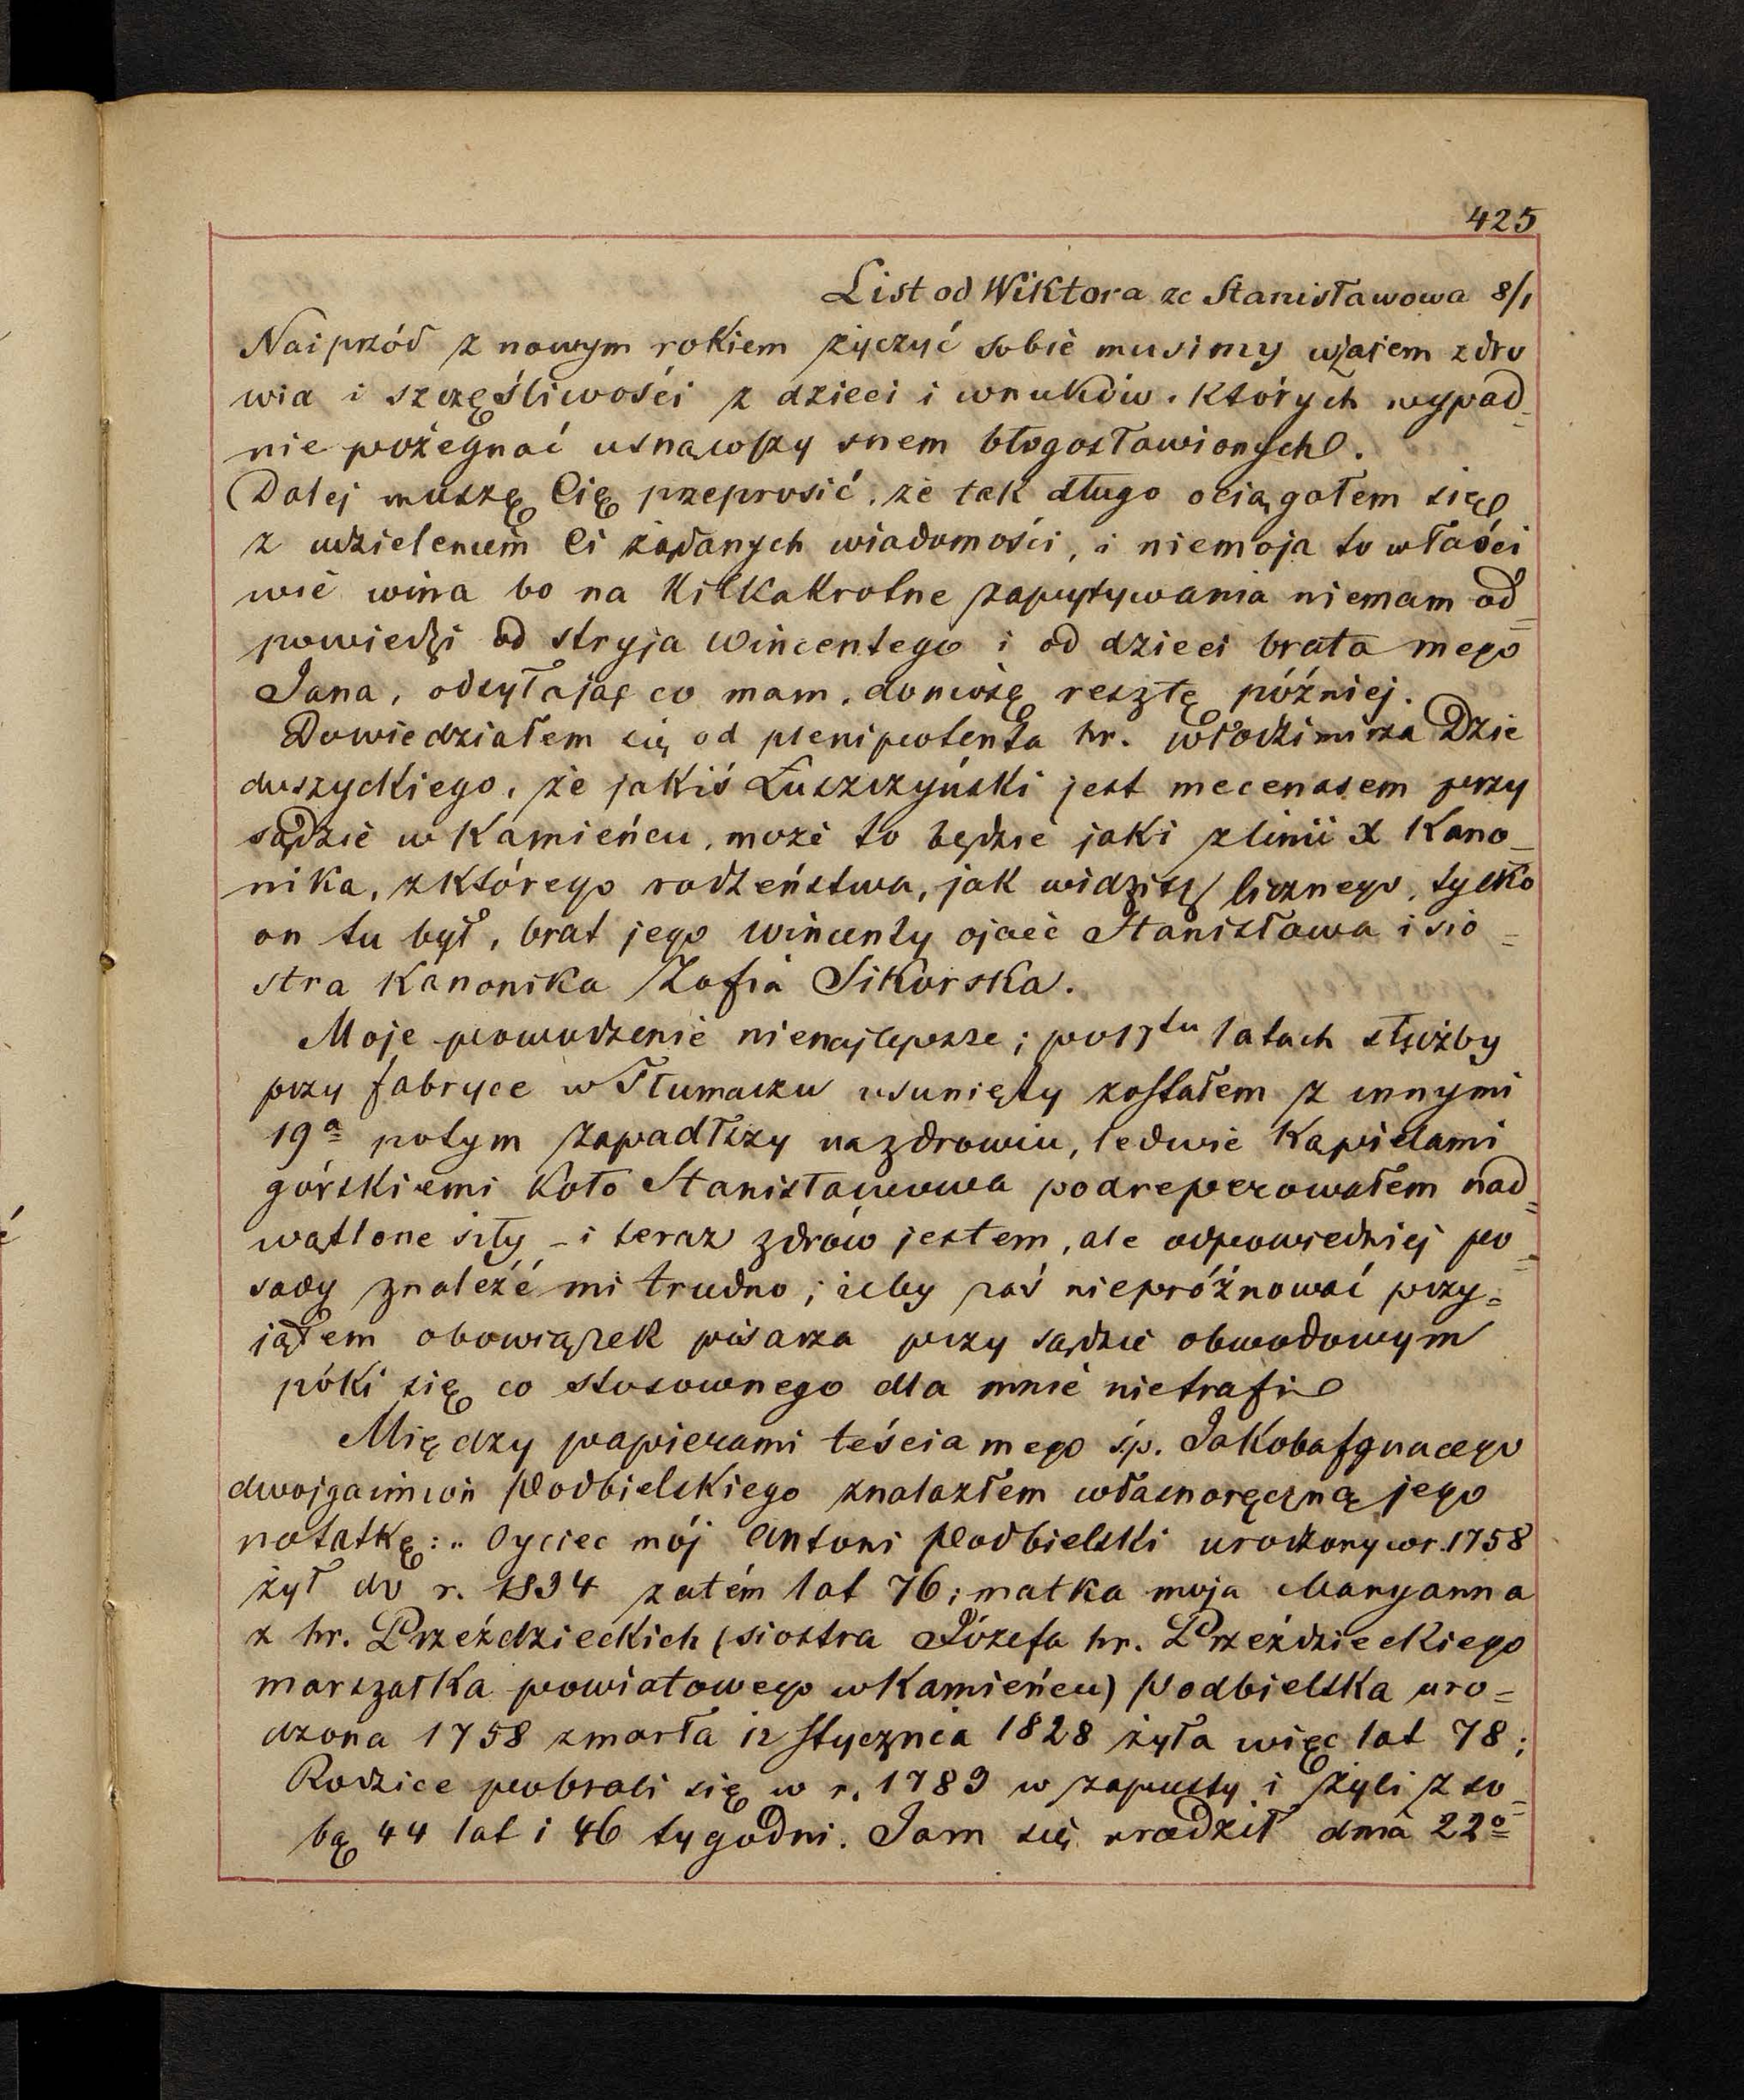 425
List od Wiktora ze Stanisławowa 8/1
Naiprzód z nowym rokiem życzyć sobie musimy wzajem zdro
wia i szczęśliwości z dzieci i wnuków, których wypad_
nie pożegnać usnąwszy snem błogosławionych.
Dalej muszę Cię przeprosić, że tak długo ociągałem się
z udzieleniem Ci żądanych wiadomości, i niemoja to właści
wie wina bo na kilkakrotne zapytywania niemam od_
powiedzi od stryja Wincentego i od dzieci brata mego
Jana, odsyłając co mam, doniosę resztę później.
Dowiedziałem się od plenipotenta hr. Włodzimirza Dzie
duszyckiego, że jakiś Łuszczyński jest mecenasem przy
sądzie w Kamieńcu, może to będzie jaki z linii X Kano_
nika, z którego rodzeństwa, jak widzisz licznego, tylko
on tu był, brat jego Wincenty ojciec Stanisława i sio=
stra Kanonika Zofia Sikorska.
Moje powodzenie nienajlepsze; po 17tu latach służby
przy fabryce w Tłumaczu usunięty zostałem z innymi
19a potym zapadłszy na zdrowiu, ledwie kąpielami
górskiemi koło Stanisławowa podreperowałem nad=
wątlone siły _ i teraz zdrów jestem, ale odpowiedniej po=
sady znaleźć mi trudno; żeby zaś niepróżnować przy=
jąłem obowiązek pisarza przy sądzie obwodowym
póki się co stosownego dla mnie nietrafi
Między papierami teścia mego ś.p. Jakoba Ignacego
dwojga imion Podbielskiego znalazłem własnoręczną jego
notatkę: „Oyciec mój Antoni Podbielski urodzony w r. 1758
żył do r. 1834 zatém lat 76; matka moja Maryanna
z hr. Przeździeckich (siostra Józefa hr. Przeździeckiego
marszałka powiatowego w Kamieńcu) Podbielska uro=
dzona 1758 zmarła 12 stycznia 1828 żyła więc lat 78;
Rodzice pobrali się w r. 1789 w zapusty i żyli z so_
bą 44 lat i 46 tygodni. Jam się urodził dnia 22o